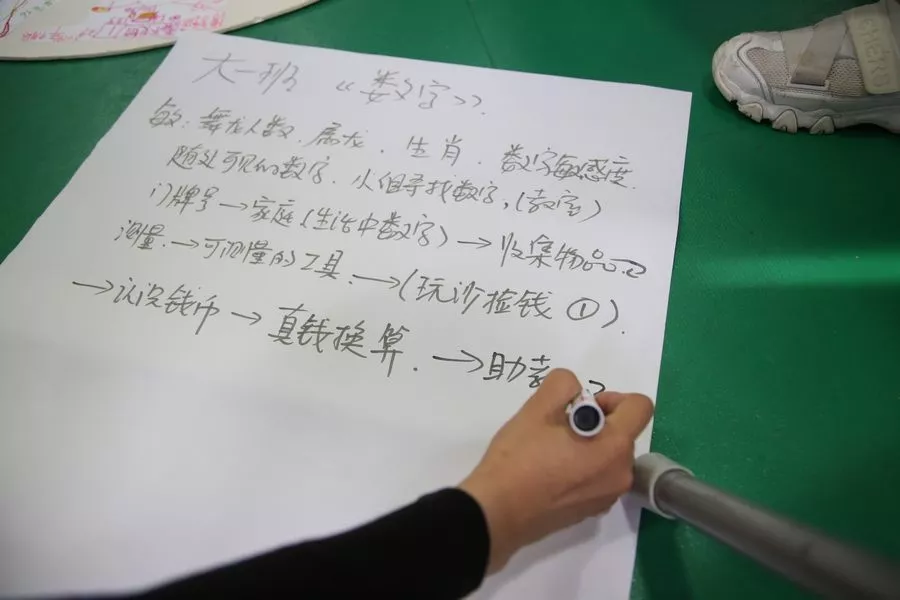 大一班 《数字》
敏：舞龙人数．属龙．生肖．数字敏感度．
随处可见的数字．小组寻找数字，（教室）
门牌号→家庭（生活中数字）→收集物品
测量．→可测量的工具．→（玩沙捡钱①）．
→认识钱币→真钱换算．→助